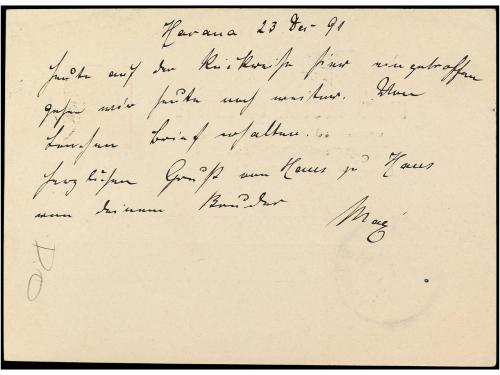 Havana 23 Dez 91
heute auf der Rückreise hier eingetroffen
gehen wir heute noch weiter. Von
Brief erhalten.
herzlichen Gruß von Haus zu Haus
von deinem Bruder
Max